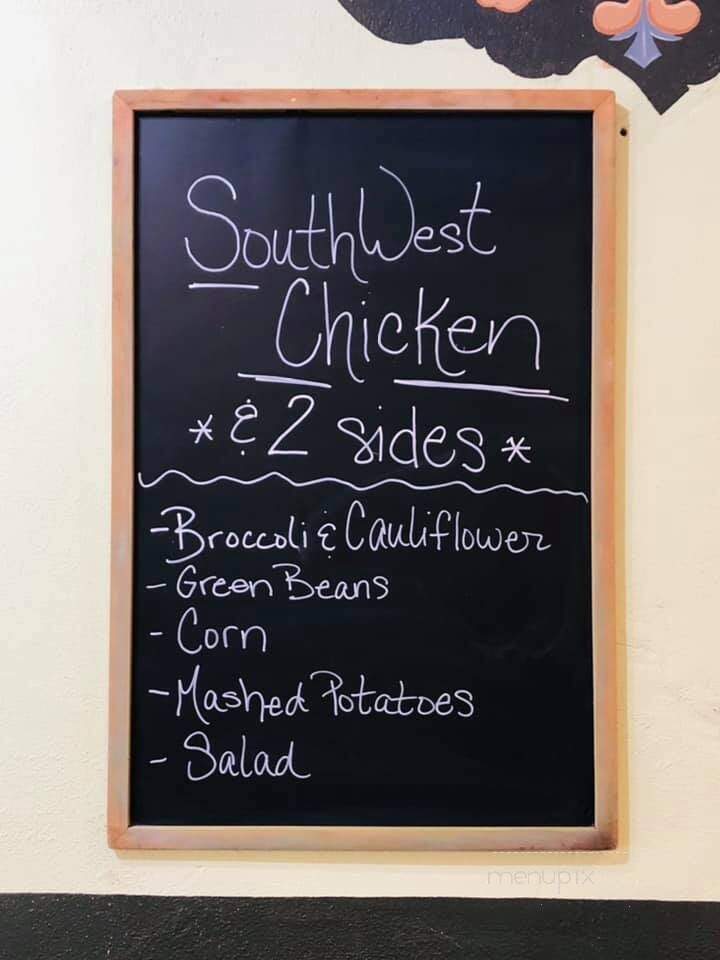 SouthWest
Chicken
* & 2 sides *
- Broccoli & Cauliflower
- Green Beans
- Corn
- Mashed Potatoes
- Salad
menupix